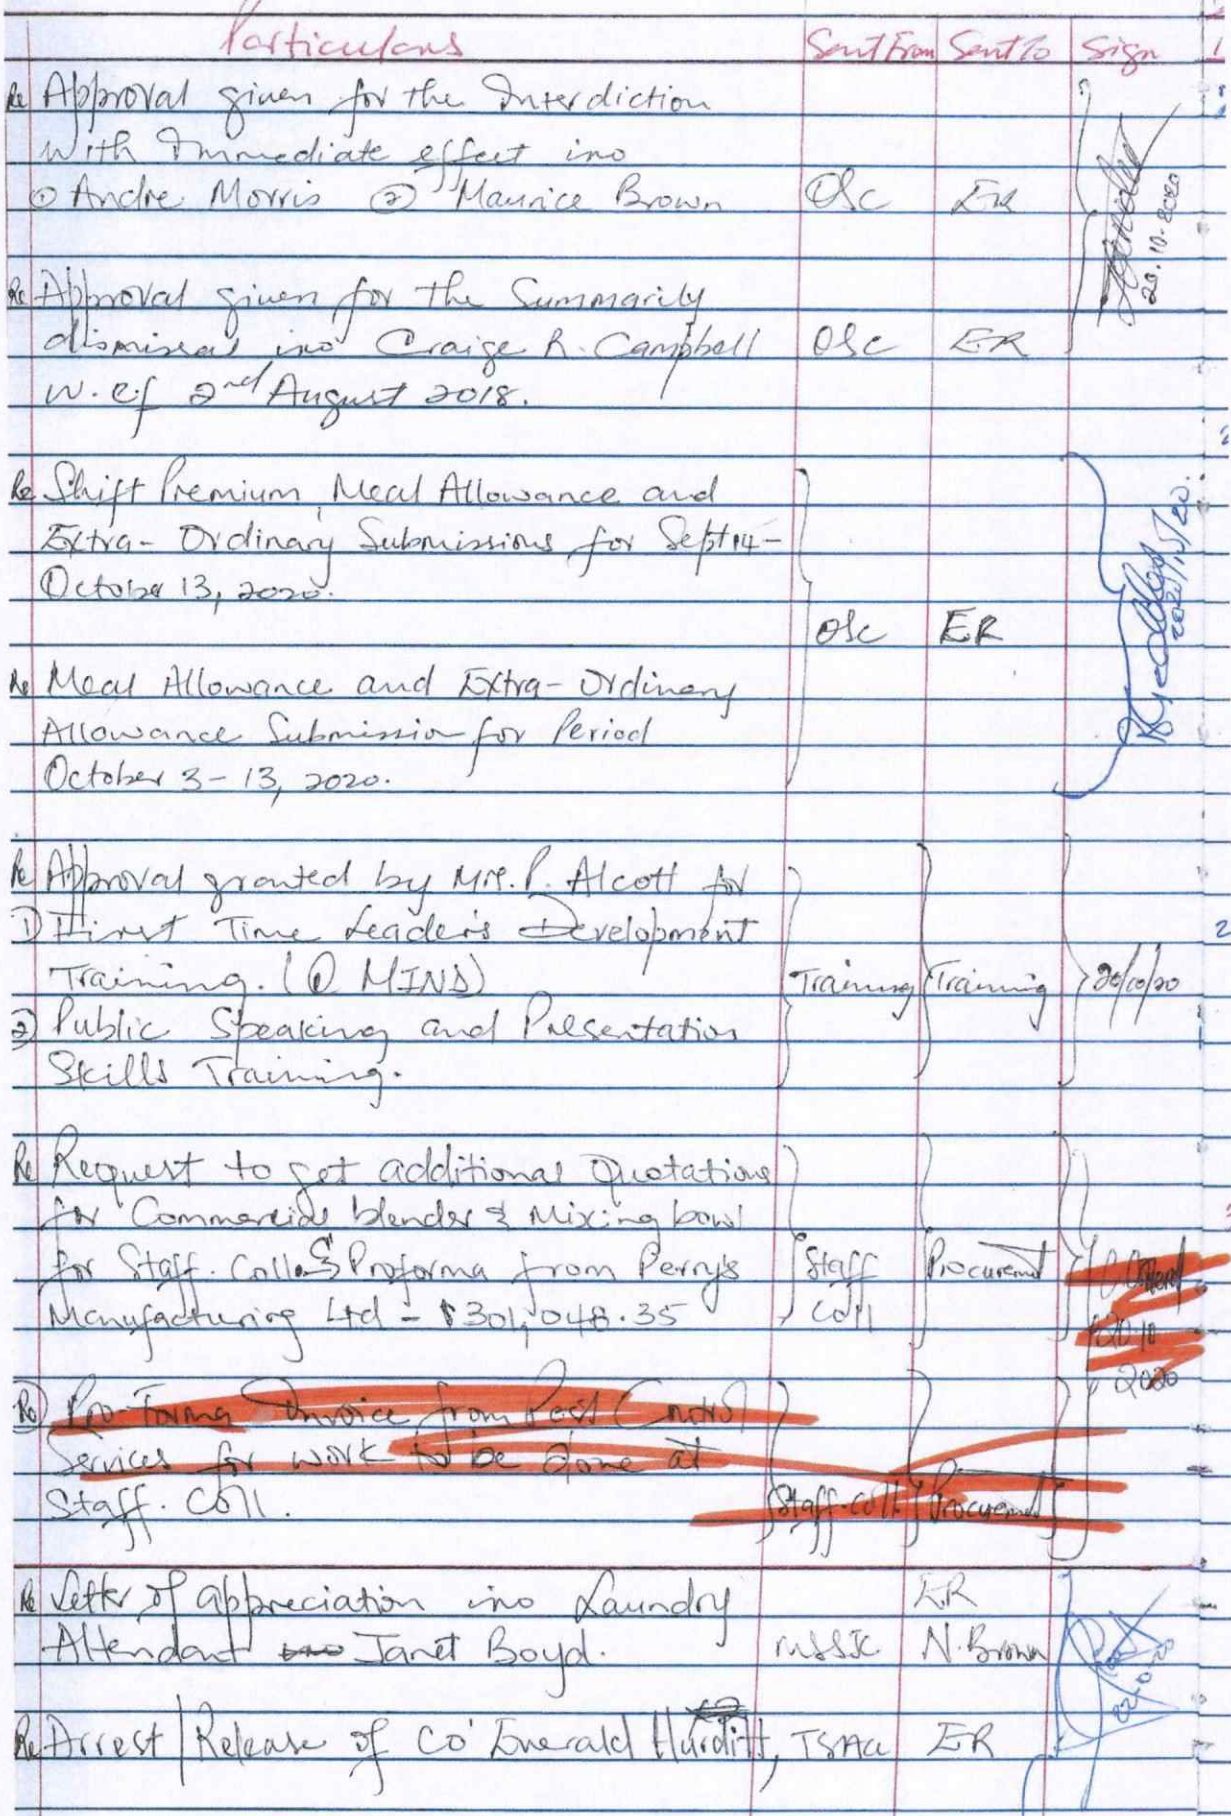 Particulars Sent From Sent To Sign
Re Approval given for the Interdiction
with Immediate effect ino
① Andre Morris ② Maurice Brown OSC ER
20.10.2020
Re Approval given for the Summarily
dismissal ino Craige R. Campbell OSC ER
w.ef 2nd August 2018.
Re Shift Premium, Meal Allowance and
Extra-Ordinary Submissions for Sept 14-
October 13, 2020.
OSC ER
Re Meal Allowance and Extra-Ordinary
Allowance Submission for Period
October 3-13, 2020.
Re Approval granted by Mrs. P. Alcott for
1) First Time Leader's Development
Training. (@ MIND) Training Training 20/10/20
2) Public Speaking and Presentation
Skills Training.
Re Request to get additional Quotations
for Commercial blender & Mixing bowl
for Staff. Coll & Proforma from Perry's Staff Procurement
Manufacturing Ltd - $301,048.35 Coll 20.10
2020
Re Pro-Forma Invoice from Pest Control
Services for work to be done at
Staff. Coll. Staff-Coll Procurement
Re Letter of appreciation ino Laundry ER
Attendant Janet Boyd. N. Brown
Re Arrest/Release of CO Emerald Hurditt, ER